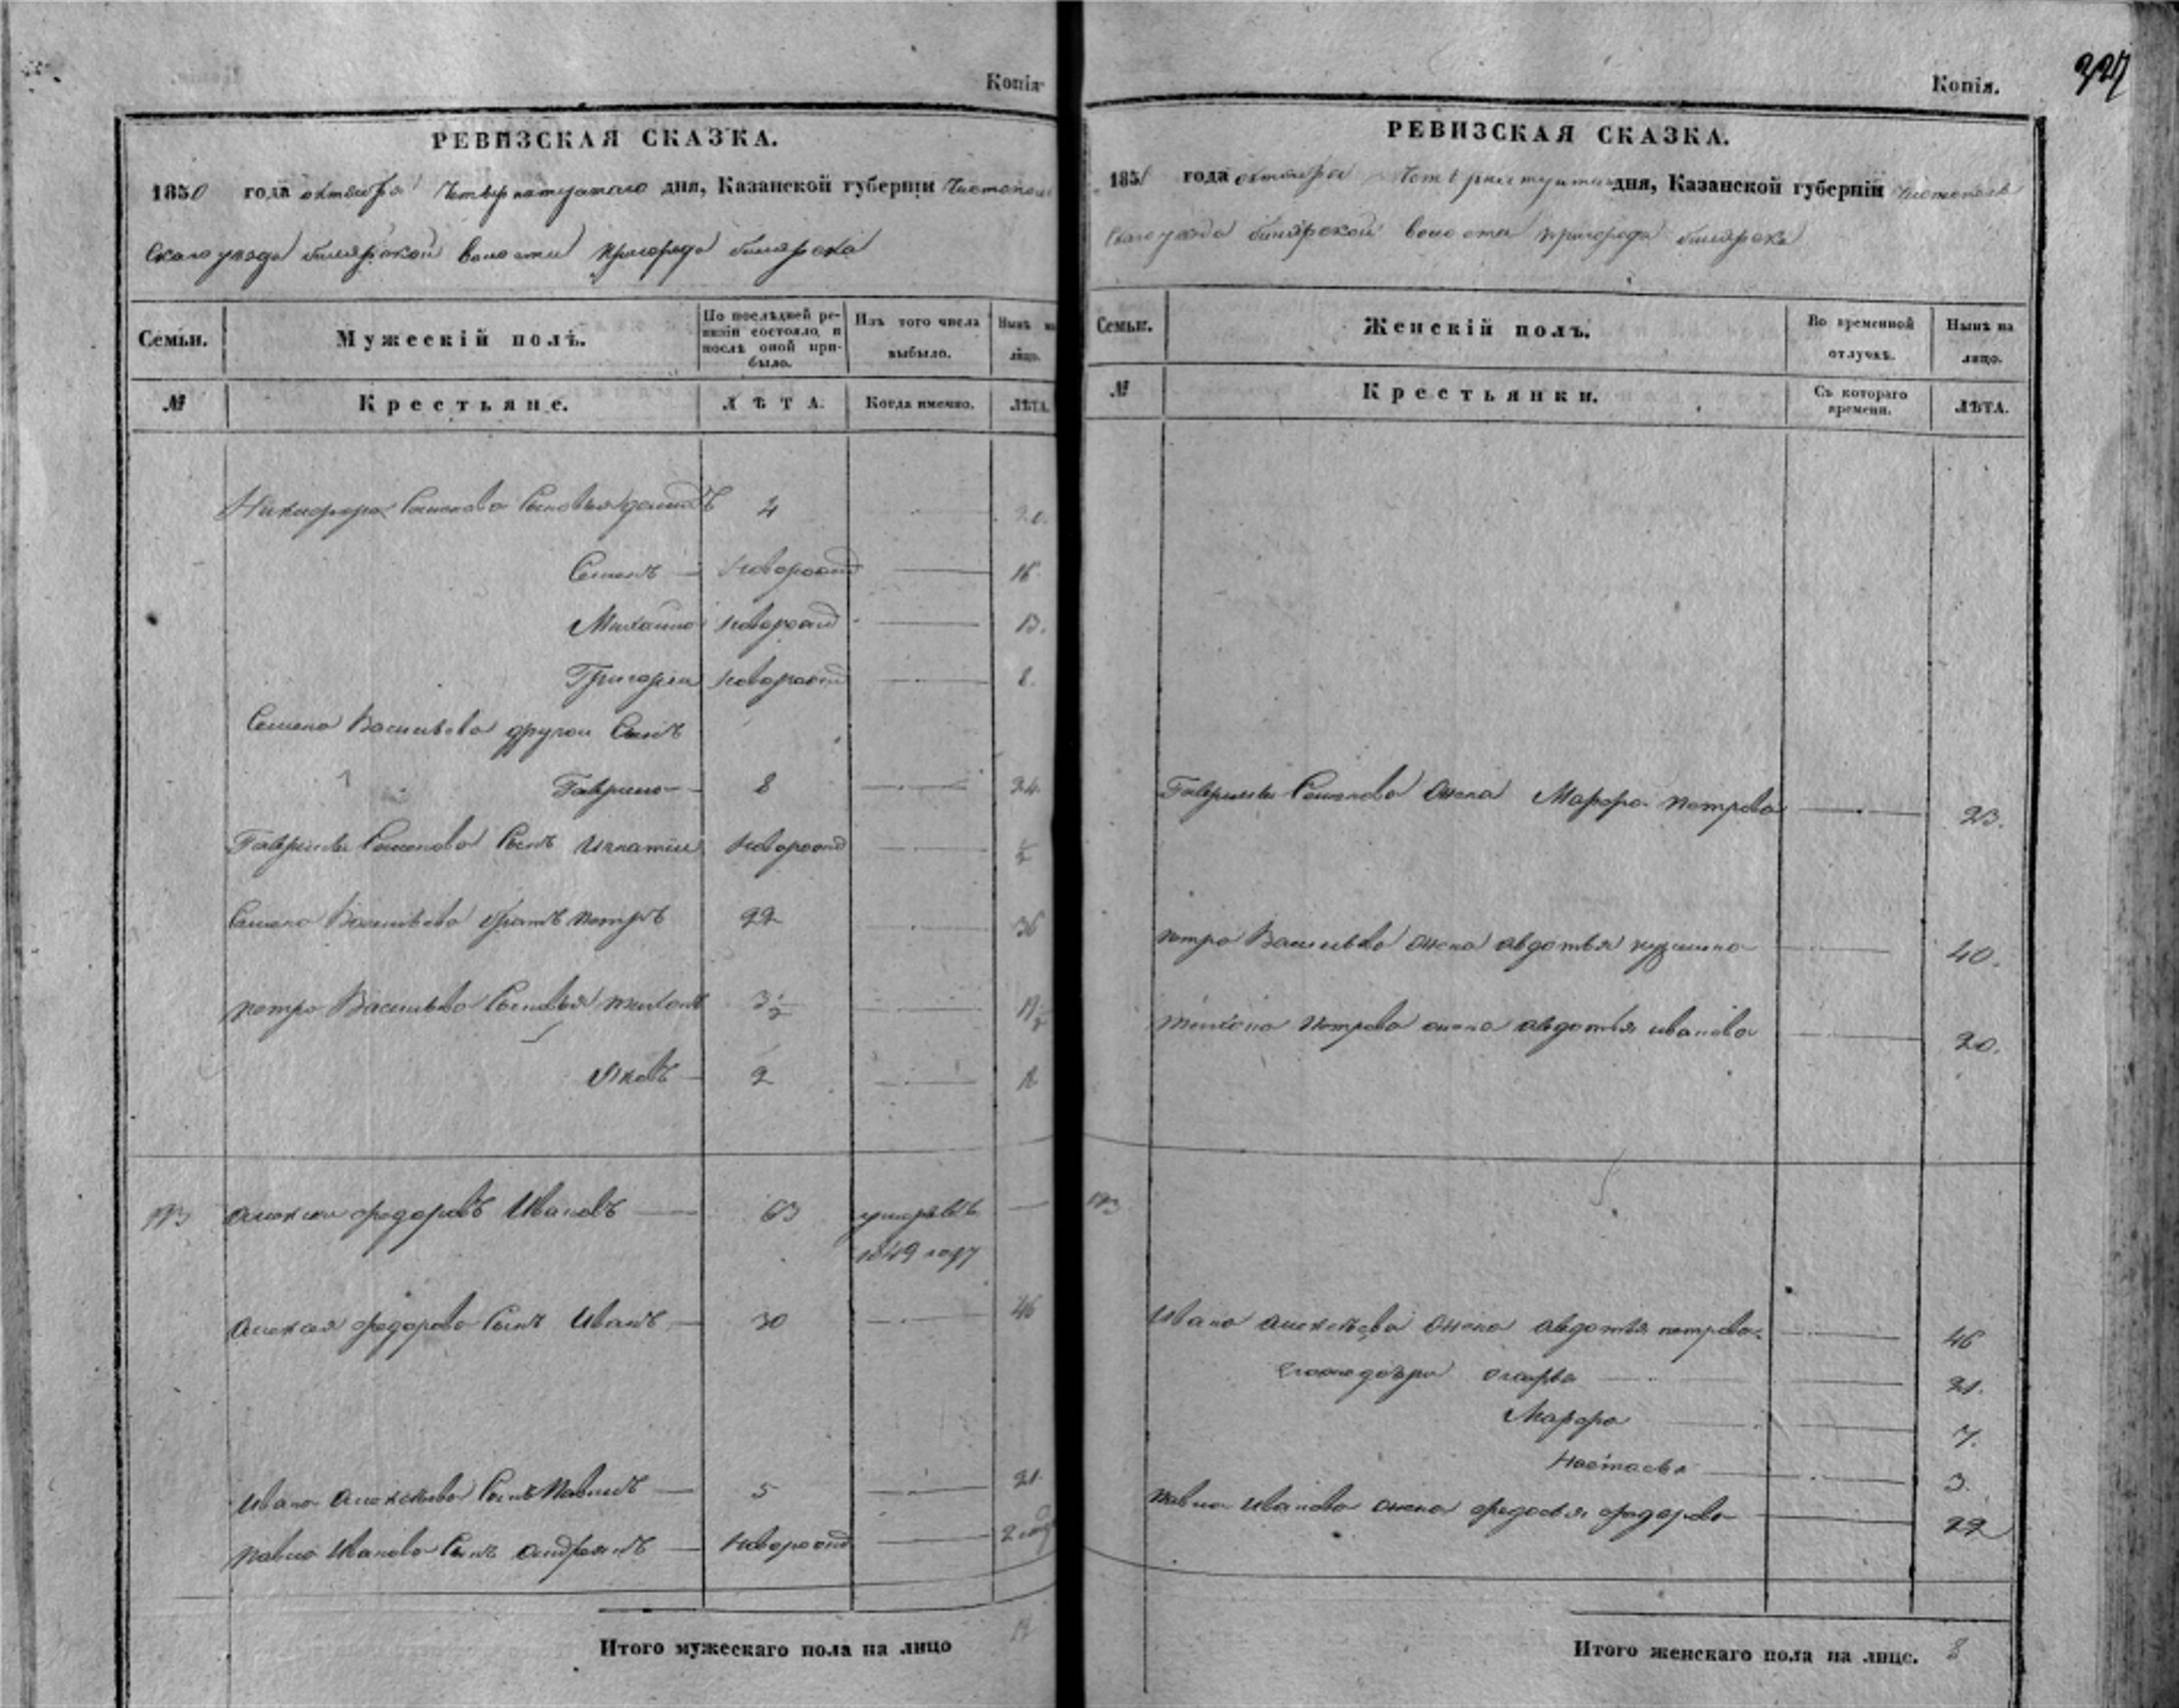 Копія
РЕВИЗСКАЯ СКАЗКА.
1850 года октября Четвертагонадесять дня, Казанской губерніи Чистополь
скаго уезда билярской волости пригорода билярска
Семьи.
Мужескій полъ.
По послѣдней ре-
визіи состояло, и
послѣ оной при-
было.
Изъ того числа
выбыло.
Нынѣ на
лицо.
№
Крестьяне.
ЛѢТА.
Когда именно.
ЛѢТА.
Никифора Семенова Сыновья 4 20.
Семенъ новорожд 16.
Михайло новорожд 13.
Григореи новорожд 8.
Семена Васильева другои Сынъ
Гаврило 8 24.
Гаврилы Семенова Сынъ Игнатіи новорожд ½
Семена Васильева братъ петръ 22 36
петра Васильева Сыновья тихонъ 3½ 19½
Яковъ 2 18
193 алексеи федоровъ Ивановъ 63 умеръ въ
1849 году
алексея федорова Сынъ Иванъ 30 46
Ивана алексеева Сынъ Павелъ 5 21.
павла Иванова Сынъ андреянъ новорожд 2
Итого мужескаго пола на лицо
Копія.
227
РЕВИЗСКАЯ СКАЗКА.
1850 года октября дня, Казанской губерніи Чистополь
скаго уезда билярской волости пригорода билярска
Семьи.
Женскій полъ.
Во временной
отлучкѣ.
Нынѣ на
лицо.
№
Крестьянки.
Съ котораго
времени.
ЛѢТА.
Гаврилы Семенова жена Марфа петрова 23.
петра Васильева жена авдотья кузмина 40.
тихона Петрова жена авдотья иванова 20.
193
Ивана алексеева жена авдотья петрова 46
дарья 21.
Марфа 7.
настасья 3.
павла иванова жена федосья федорова 22
Итого женскаго пола на лицо. 8